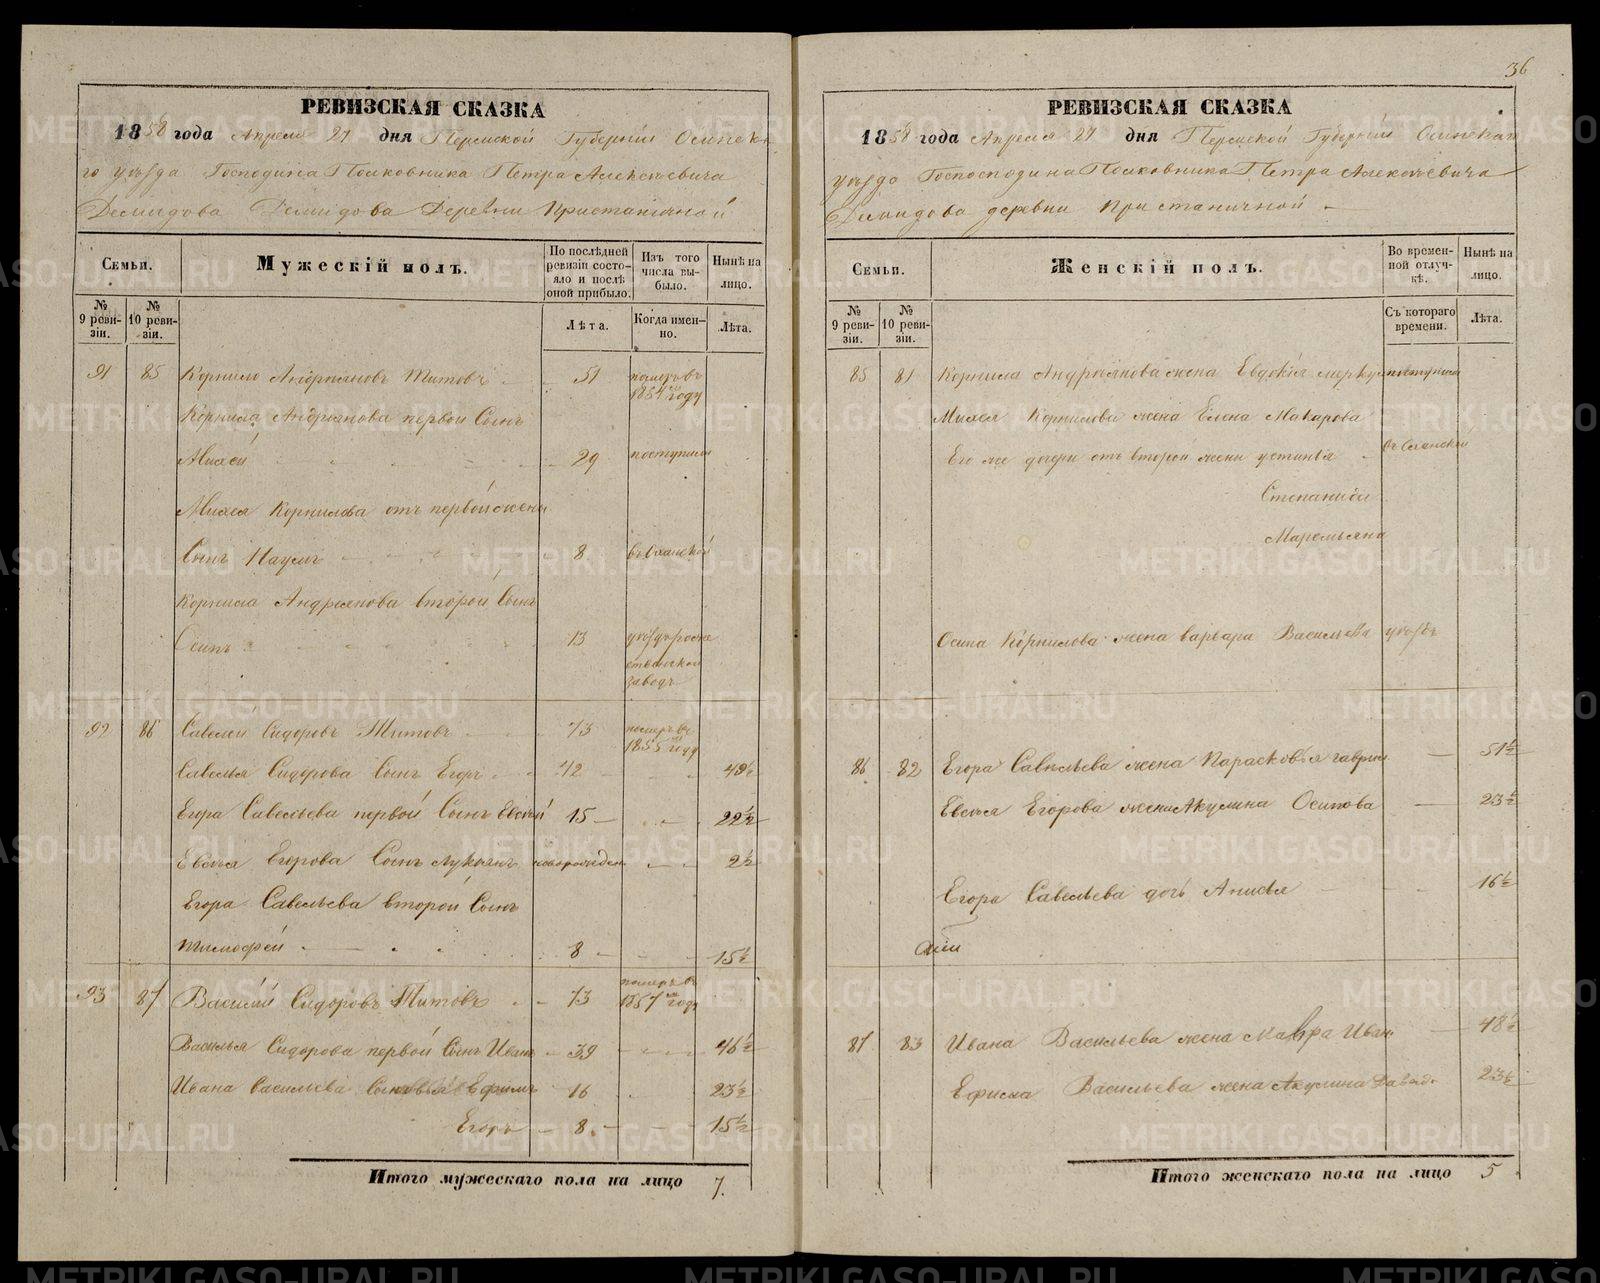 36
РЕВИЗСКАЯ СКАЗКА
1858 года Апреля 21 дня Пермской Губернии Осинска-
го уѣзда Господина Полковника Петра Алексѣевича
Демидова Демидова Деревни Пристаничной
Семьи.
Мужескій полъ.
По послѣдней ревизіи состояло и послѣ оной прибыло.
Изъ того числа выбыло.
Нынѣ на лицо.
№ 9 ревизіи.
№ 10 ревизіи.
Лѣта.
Когда именно.
Лѣта.
91 85 Корнило Андрияновъ Титовъ 51 померъ въ 1854 году
Корнила Андриянова первой Сынъ
Михей 29 поступили
Михея Корнилова отъ первой жены
Сынъ Наумъ 8 въ Оханской
Корнила Андриянова второй Сынъ
Осипъ 13 уѣздъ
заводъ
92 86 Савелей Сидоровъ Титовъ 73 померъ въ 1855 году
Савелья Сидорова Сынъ Егоръ 42 49½
Егора Савельева первой Сынъ Евсей 15 22½
Евсѣя Егорова Сынъ Лукьянъ новорожден 2½
Егора Савельева второй Сынъ
Тимофей 8 15½
93 87 Василий Сидоровъ Титовъ 73 померъ въ 1857 году
Василья Сидорова первой Сынъ Иванъ 39 46½
Ивана Васильева Сыновья Ефимъ 16 23½
Егоръ 8 15½
Итого мужескаго пола на лицо 7.
РЕВИЗСКАЯ СКАЗКА
1858 года Апреля 21 дня Пермской Губернии Осинскаго
уѣзда Госпосподина Полковника Петра Алексѣевича
Демидова деревни Пристаничной
Семьи.
Женскій полъ.
Во временной отлучкѣ.
Нынѣ на лицо.
№ 9 ревизіи.
№ 10 ревизіи.
Съ котораго времени.
Лѣта.
85 81 Корнила Андриянова жена Евдокія поступили
Михея Корнилова жена Елена Макарова
Его же дочери отъ второй жены устинья въ Оханской
Степанида
Маремьяна
Осипа Корнилова жена варвара Васильева уѣздъ
86 82 Егора Савельева жена Парасковья гаврил 51½
Евсѣя Егорова жена Акулина Осипова 23½
Егора Савельева дочь Анисья 16½
87 83 Ивана Васильева жена Мавра Иван 48½
Ефима Васильева жена Акулина Давыд. 23½
Итого женскаго пола на лицо 5
METRIKI.GASO-URAL.RU